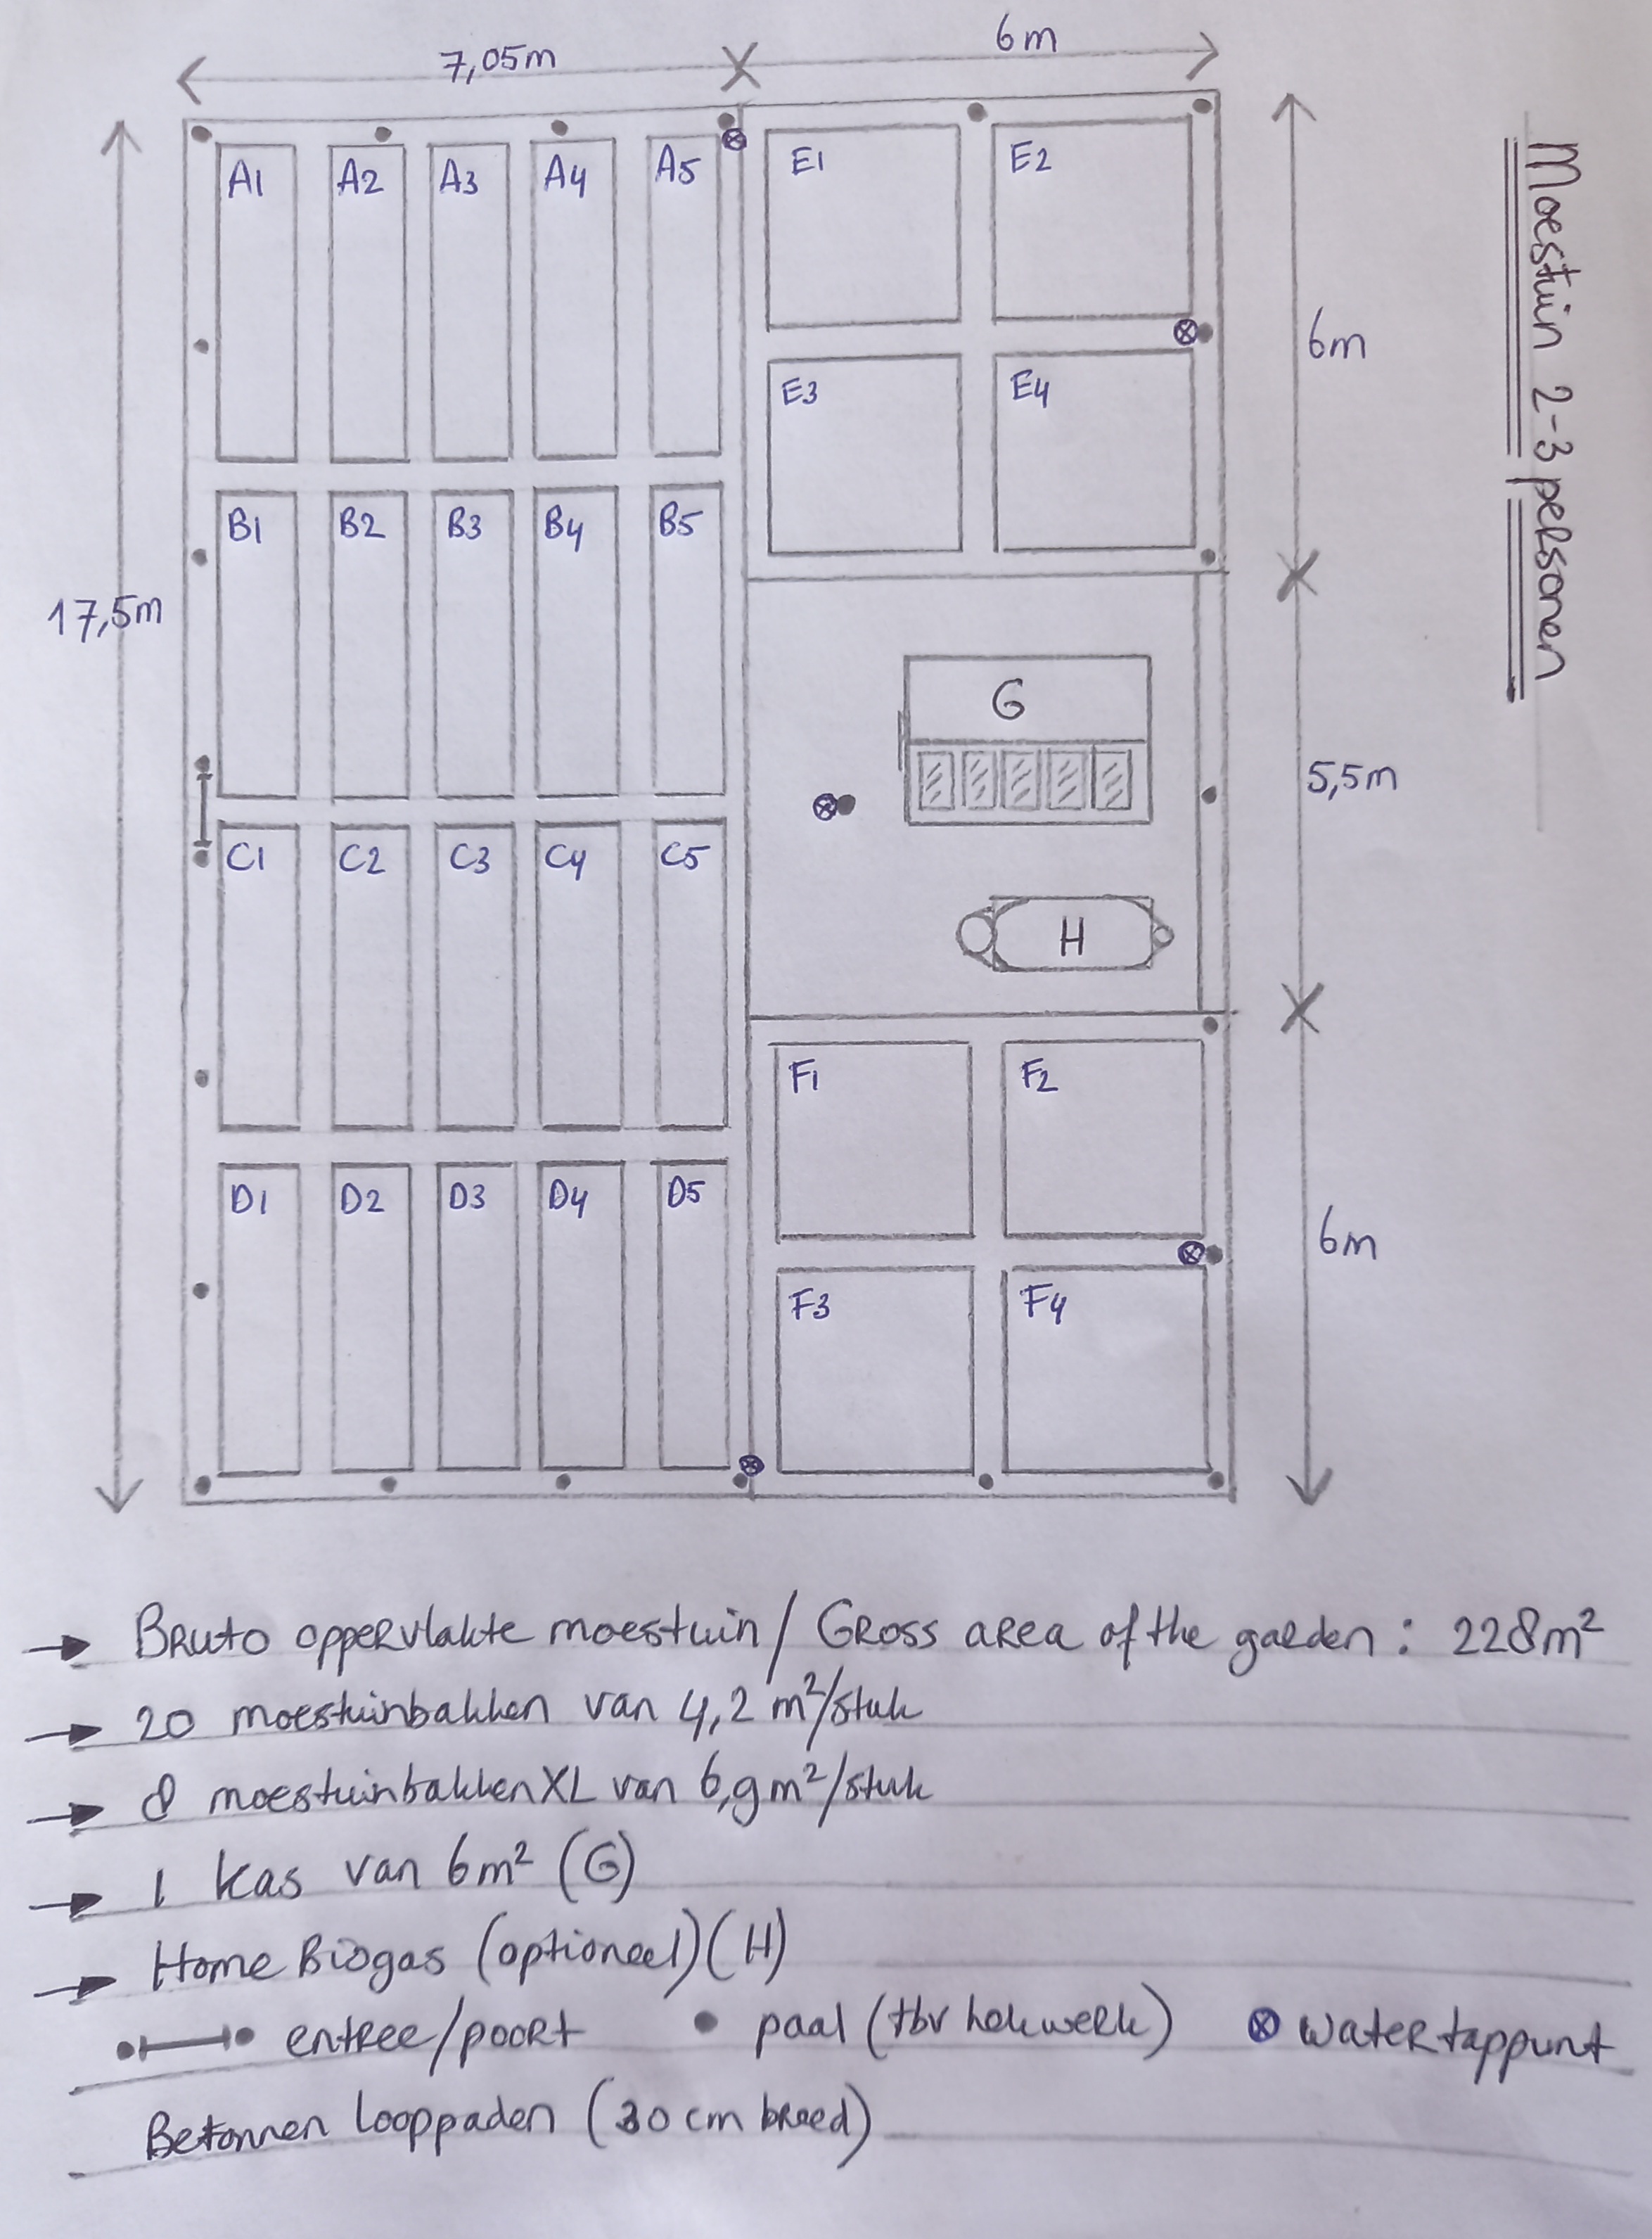 7,05m
6m
Moestuin 2-3 personen
A1 A2 A3 A4 A5
E1 E2
6m
E3 E4
B1 B2 B3 B4 B5
17,5m
G
5,5m
C1 C2 C3 C4 C5
H
F1 F2
D1 D2 D3 D4 D5
6m
F3 F4
→ Bruto oppervlakte moestuin / Gross area of the garden : 228m²
→ 20 moestuinbakken van 4,2 m²/stuk
→ 8 moestuinbakken XL van 6,9m²/stuk
→ 1 kas van 6m² (G)
→ Home Biogas (optioneel) (H)
entree/poort paal (tbv hekwerk) watertappunt
Betonnen looppaden (30 cm breed)